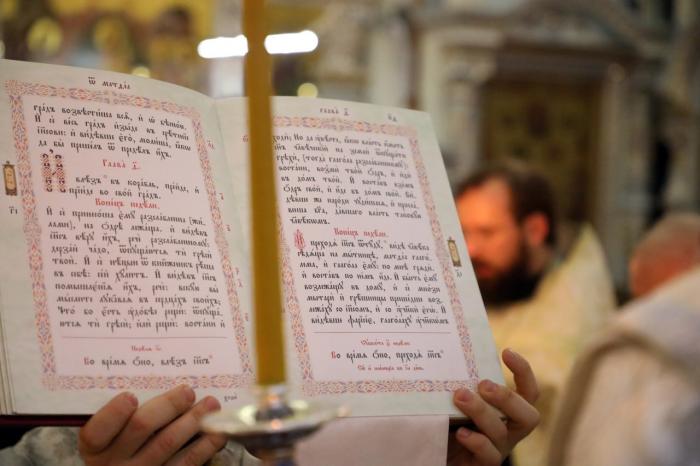 Ѿ Матѳа
градъ возвѣстиша всѧ, и ѡ бѣсною.
И се весь градъ изыде въ срѣтенїе
їисови: и видѣвше его, молиша, ꙗкѡ
да бы прешелъ ѿ предѣлъ ихъ.
Глава
влѣзъ въ корабль, прейде, и
прїиде во свой градъ.
недѣли.
И се принесоша ему разслабленна (жи-
лами), на одрѣ лежаща. и видѣвъ
їисъ вѣру ихъ, рече разслабленному:
дерзай чадо, ѿпущаютсѧ ти грѣси
твои. И се нѣцыи ѿ книжникъ рѣша
въ себѣ: сей хулитъ. И видѣвъ їисъ
помышленїѧ ихъ, рече: вскую вы
мыслите лукаваѧ въ сердцахъ своихъ;
Что бо есть удобѣе рещи: ѿпуща-
ютсѧ ти грѣси: или рещи: востани и
Во времѧ оно, влѣзъ їисъ
Глава
ходи; Но да увѣсте, ꙗкѡ власть имать
сынъ человѣческїй на земли ѿпущати
грѣхи, (тогда глагола разслабленному:)
востани, возми твой одръ, и иди въ
домъ твой. И воставъ (взѧтъ одръ
свой, и) иде въ домъ свой. Видѣвше
же народи чудишасѧ, и просла-
виша бга, давшаго власть таковую
человѣкомъ.
недѣли.
преходѧ їисъ ѿтуду, видѣ человѣка
сѣдѧща на мытницѣ, матѳеа глаго-
лема, и глагола ему: по мнѣ грѧди.
и воставъ по немъ иде. И бысть ему
возлежащу въ дому, и се мнози
мытари и грѣшницы пришедше воз-
лежаху со їисомъ, и со ученики егѡ.
И видѣвше фарїсее, глаголаху ученикѡмъ
Во времѧ оно, преходѧ їисъ